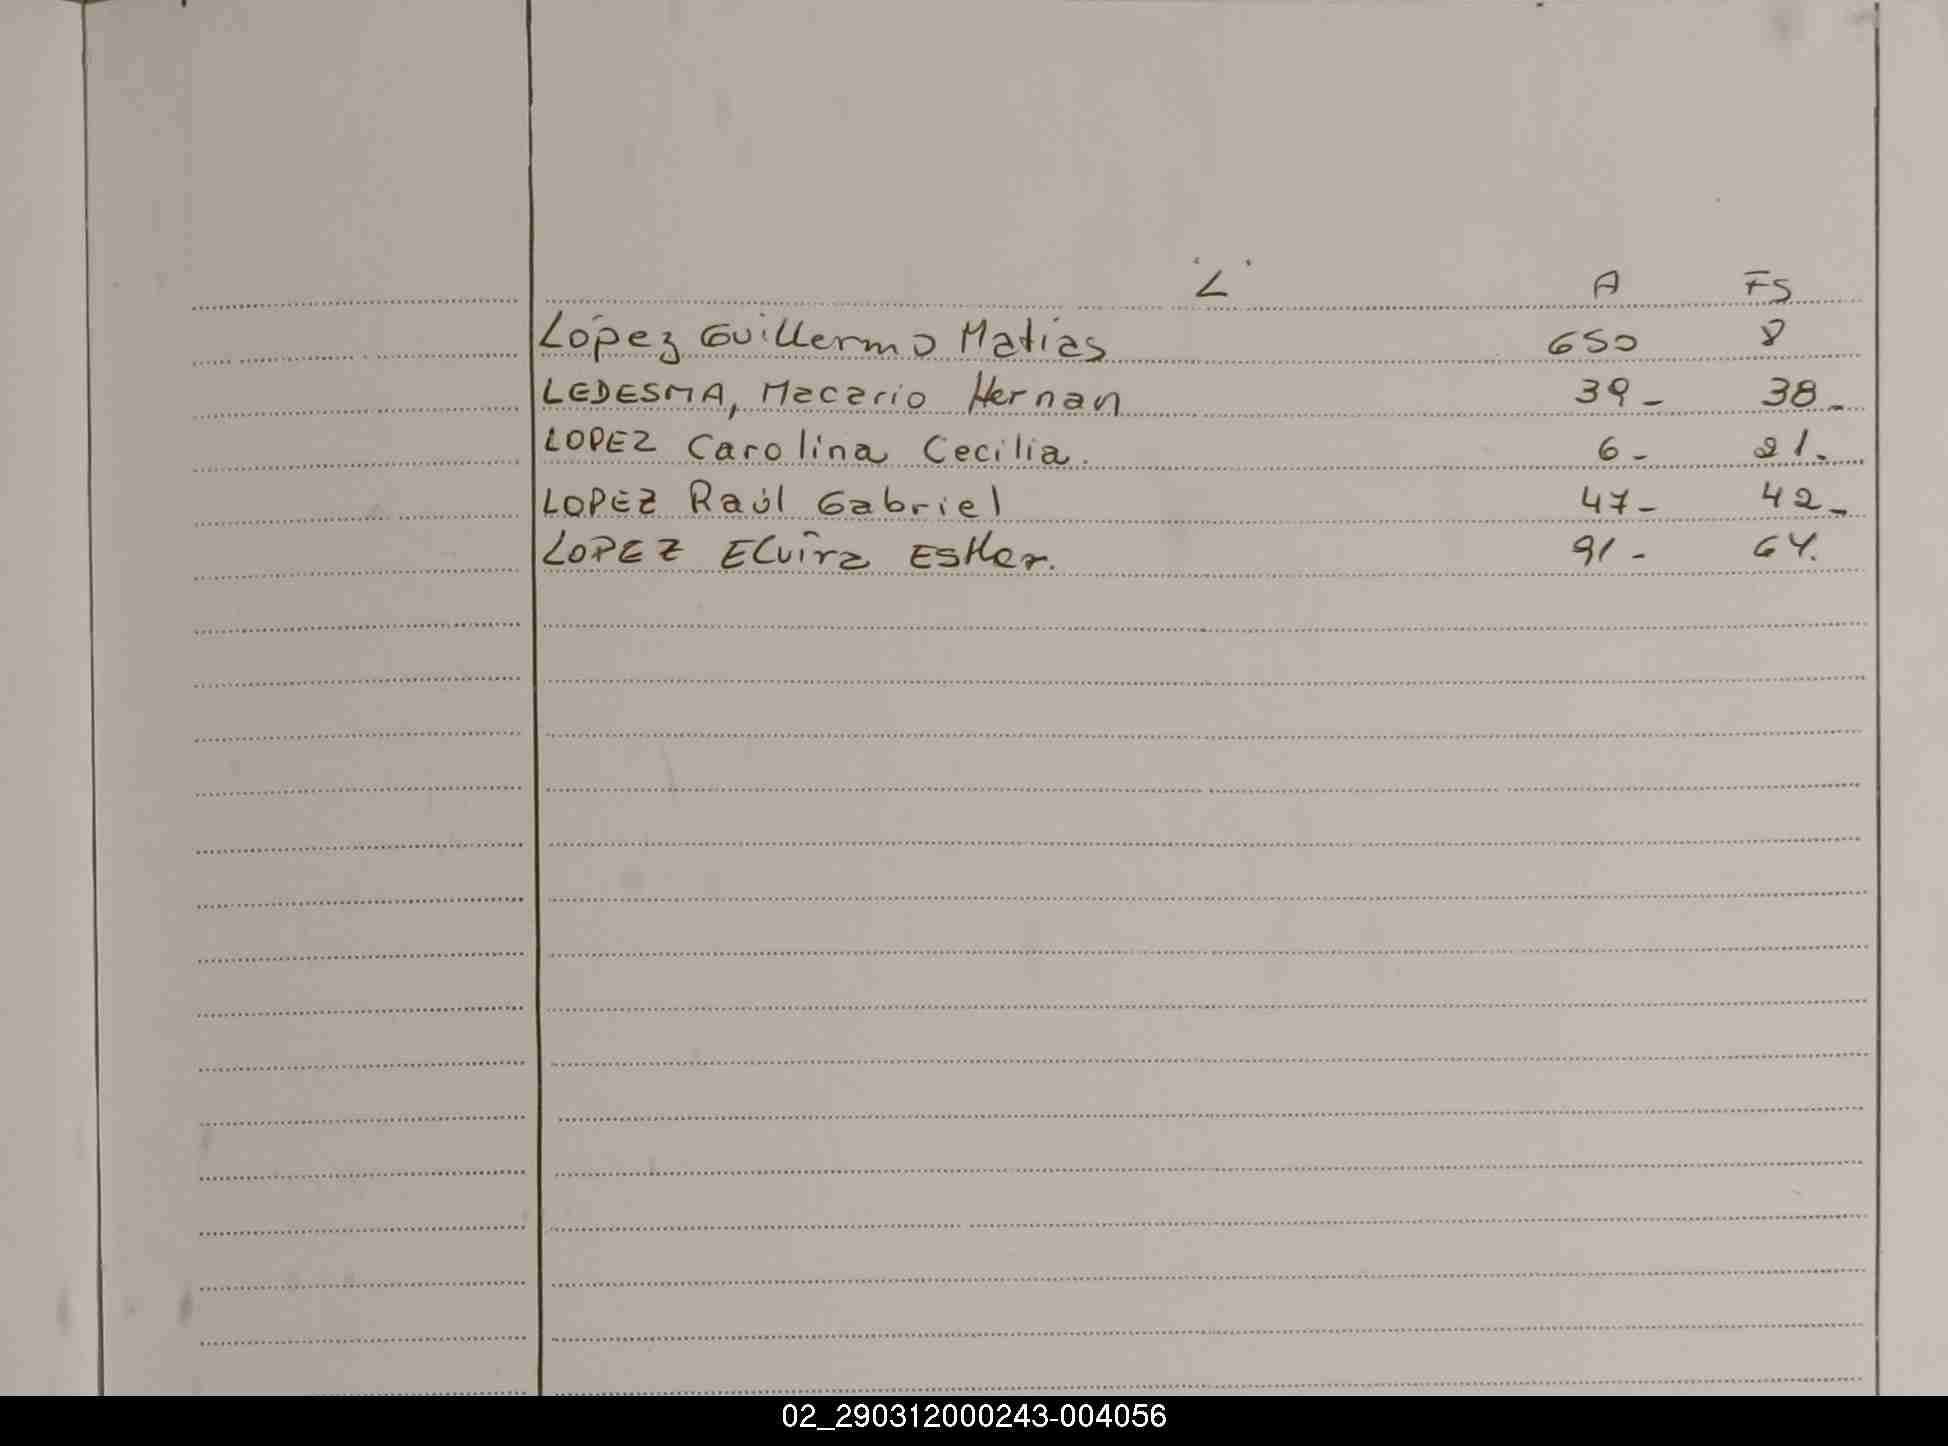 "L" A FS
López Guillermo Matias 650 8
LEDESMA, Macario Hernan 39- 38-
LOPEZ Carolina Cecilia. 6- 21-
LOPEZ Raúl Gabriel 47- 42-
LOPEZ Elvira Esther. 91- 64.
02_290312000243-004056